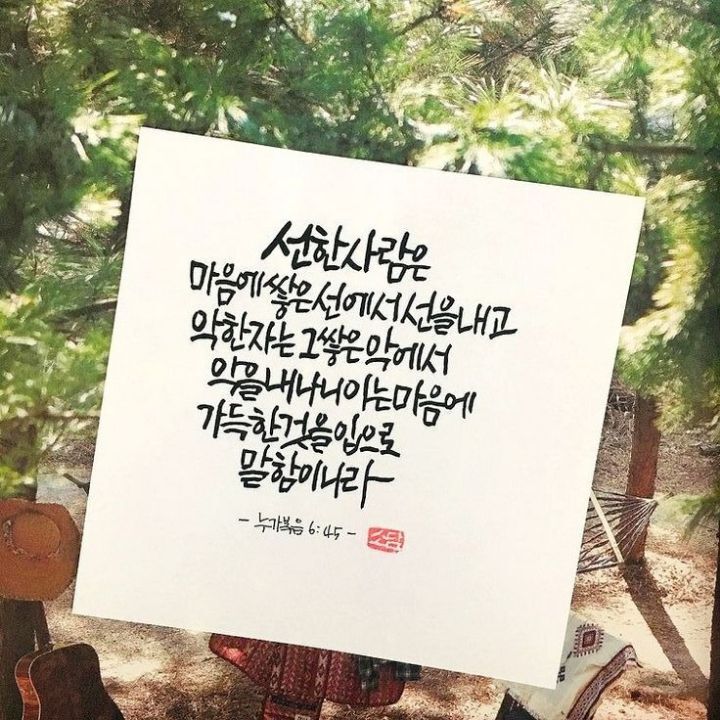 선한사람은
마음에쌓은선에서선을내고
악한자는그쌓은악에서
악을내나니이는마음에
가득한것을입으로
말함이니라
- 누가복음 6:45 -
소담